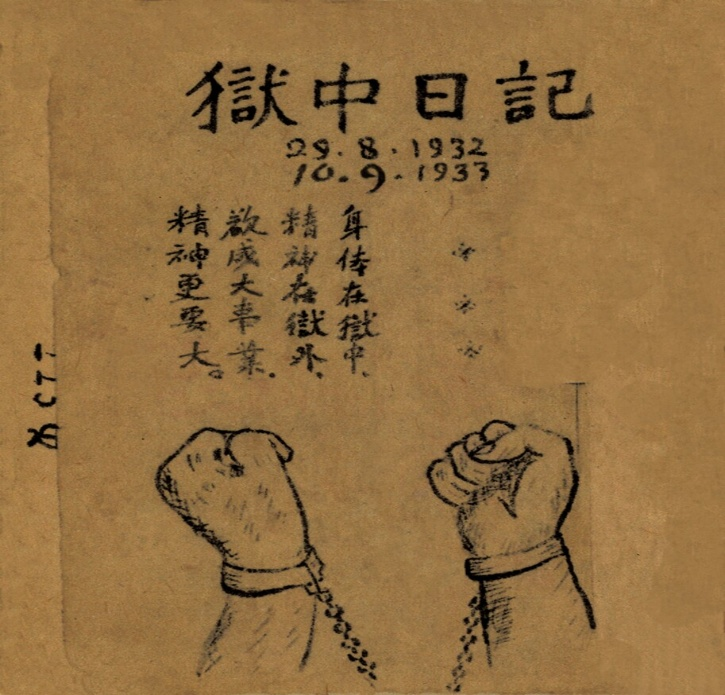 獄中日記
29.8.1932
10.9.1933
身体在獄中.
精神在獄外.
欲成大事業.
精神更要大。